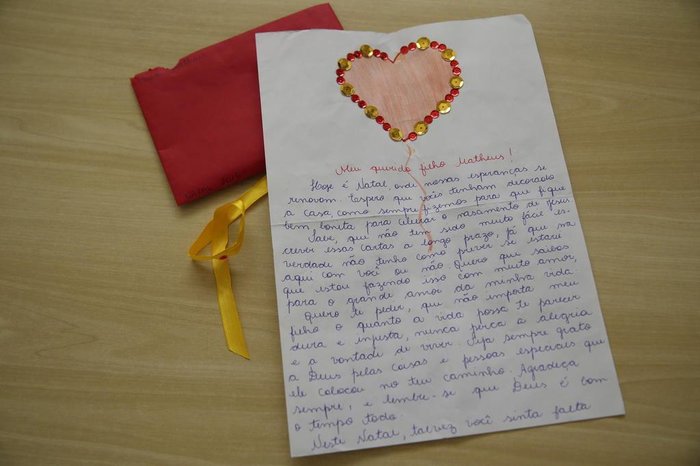 Meu querido filho Matheus!
Hoje é Natal, onde nossas esperanças se
renovam. Espero que vocês tenham decorado
a casa como sempre fizemos para que fique
bem bonita para celebrar o nascimento de Jesus
Sabe, que não tem sido muito fácil es-
crever essas cartas a longo prazo, já que na
verdade não tenho como prever se estarei
aqui com você ou não. Quero que saibas
que estou fazendo isso com muito amor,
para o grande amor da minha vida.
Quero te pedir, que não importa meu
filho o quanto a vida possa te parecer
dura e injusta, nunca perca a alegria
e a vontade de viver. Seja sempre grato
a Deus pelas coisas e pessoas especiais que
ele colocou no teu caminho. Agradeça
sempre, e lembre-se que Deus é bom
o tempo todo.
Neste Natal, talvez você sinta falta